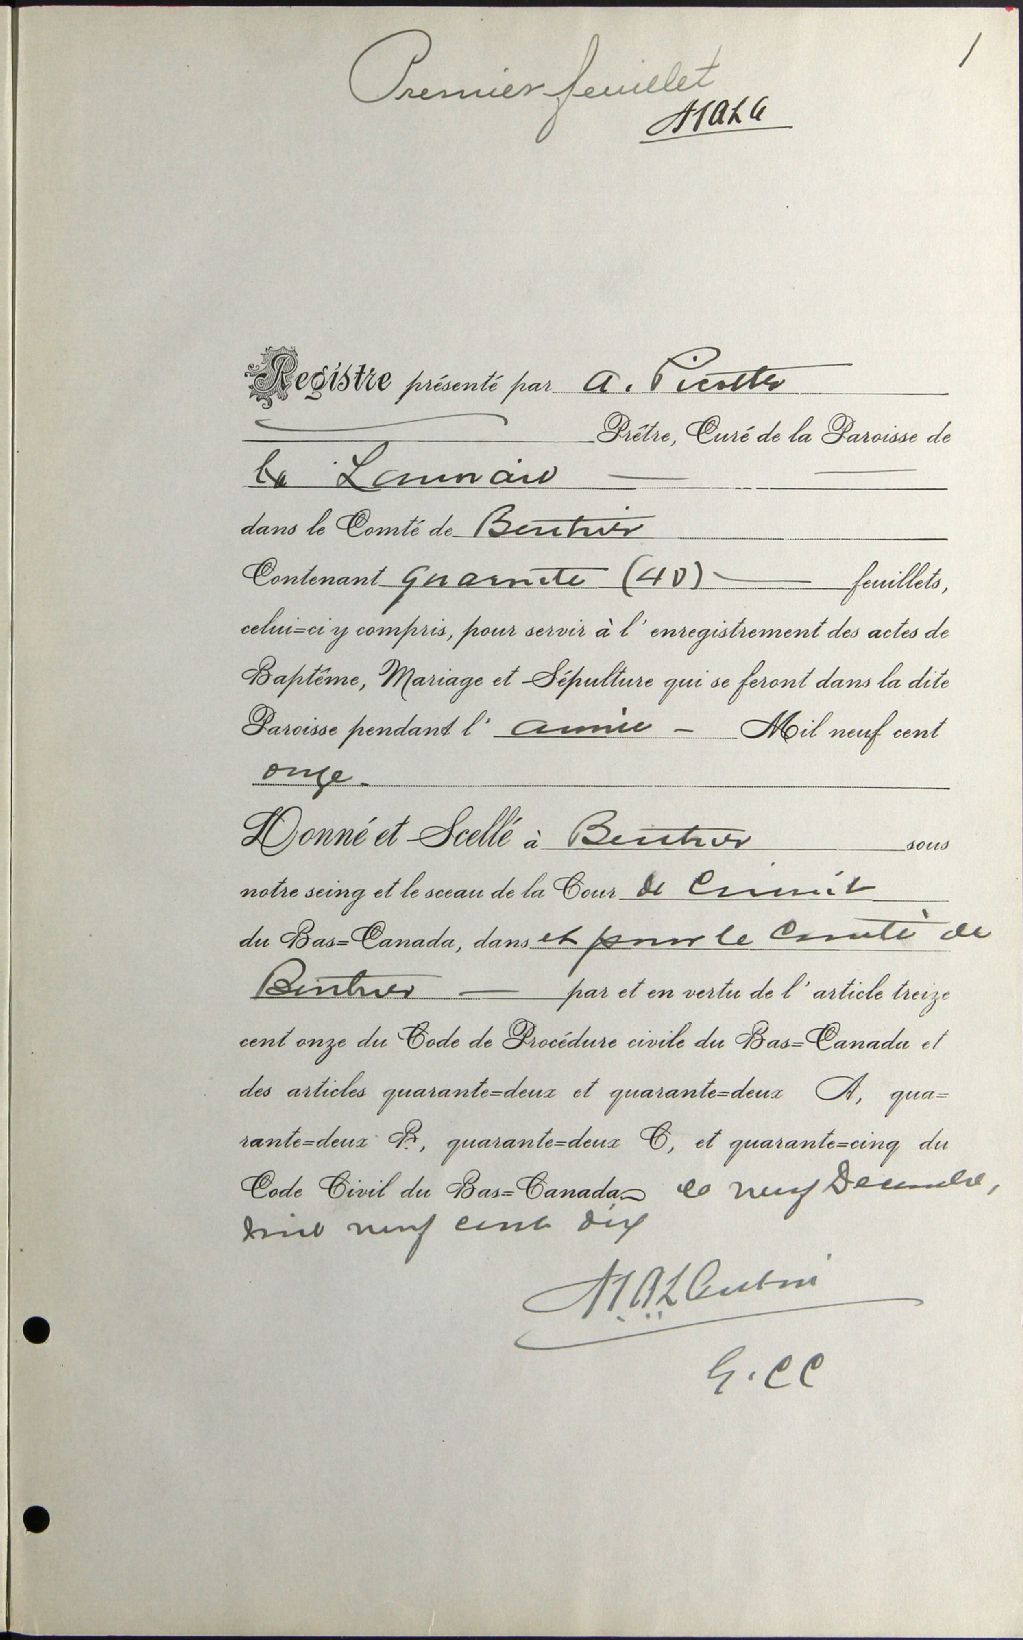 1
Premier feuillet
Registre présenté par A. Picotte
Prêtre, Curé de la Paroisse de
Lanoraie
dans le Comté de Berthier
Contenant quarante (40) feuillets,
celui=ci y compris, pour servir à l'enregistrement des actes de
Baptême, Mariage et Sépulture qui se feront dans la dite
Paroisse pendant l'année - Mil neuf cent
onze.
Donné et Scellé à Berthier sous
notre seing et le sceau de la Cour de Circuit
du Bas=Canada, dans et pour le Comté de
Berthier — par et en vertu de l'article treize
cent onze du Code de Procédure civile du Bas=Canada et
des articles quarante=deux et quarante=deux A, qua=
rante=deux B, quarante=deux C, et quarante=cinq du
Code Civil du Bas=Canada ce neuf Decembre,
mil neuf cent dix
G. C C